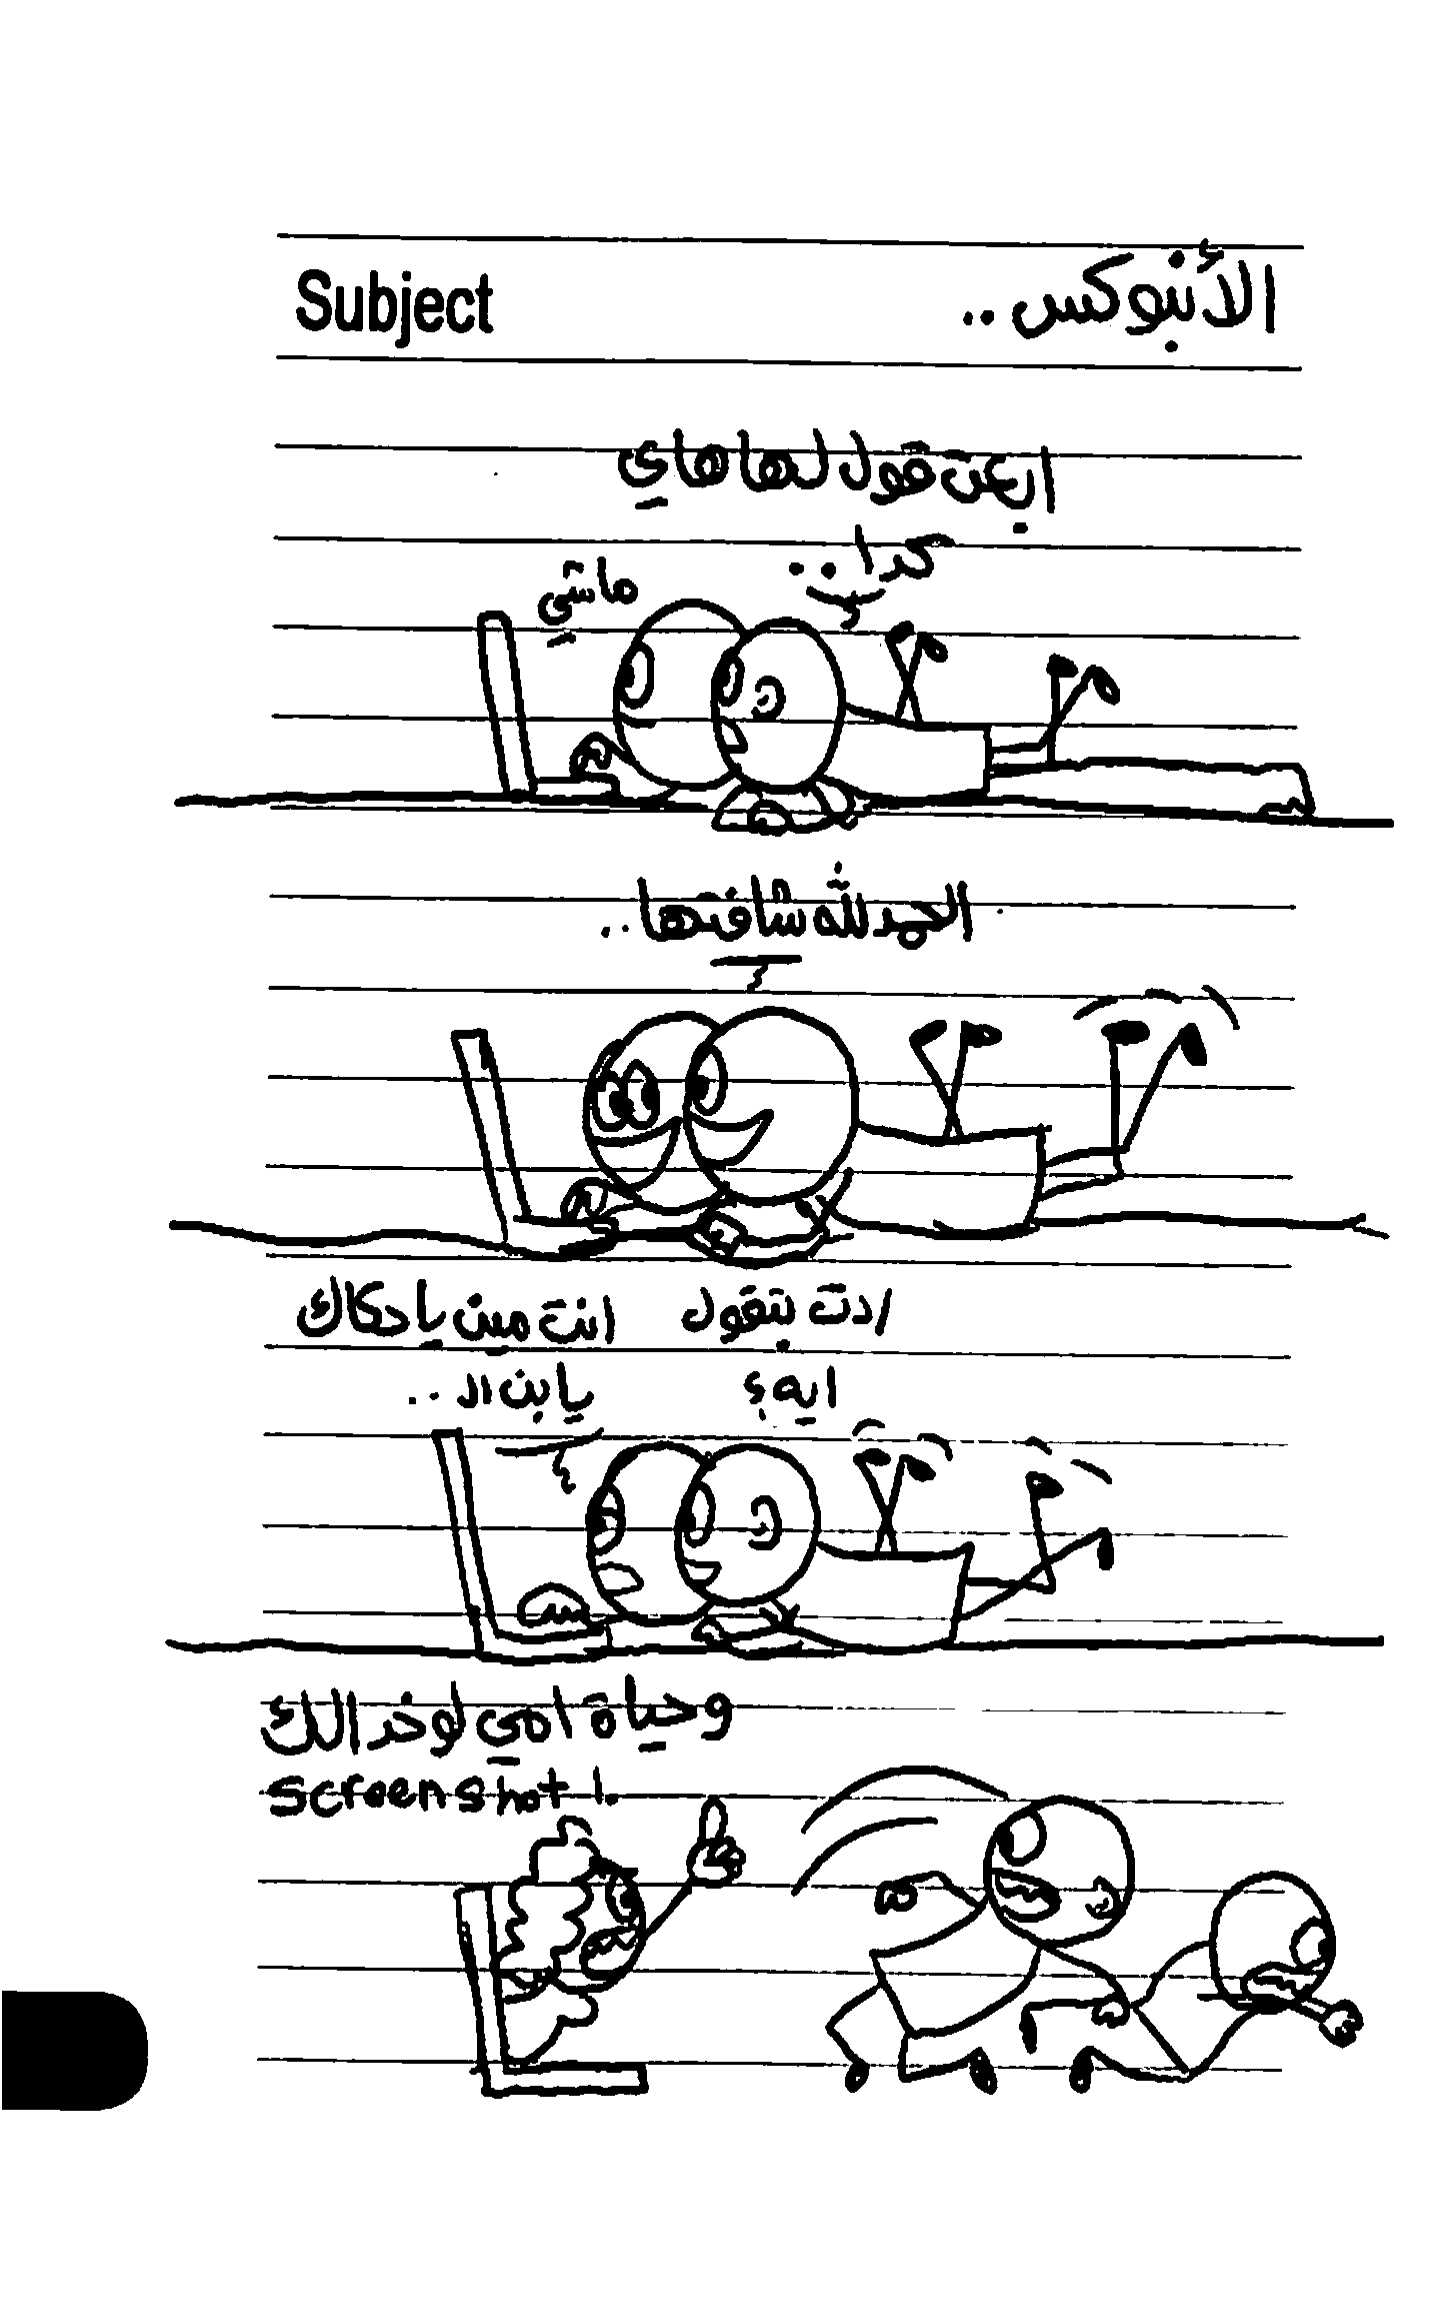 الأنبوكس ..
Subject
ابعت قول لها هاي
كدا ..
ماشي
الحمد لله شافتها ..
ادت بتقول
ايه؟
انت مين يا دكاك
يا بن ال ..
وحياة امي لو خد الك
screenshot !.